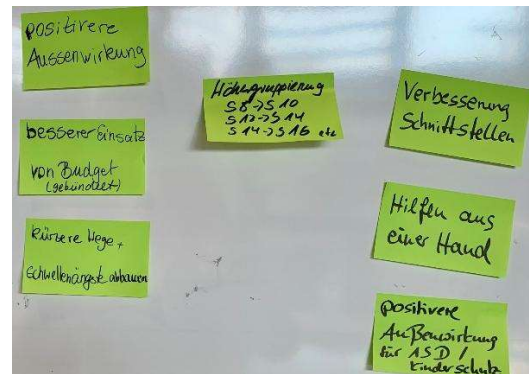 positivere
Aussenwirkung
besserer Einsatz
von Budget
(gebündelt)
kürzere Wege,
Schwellenängste abbauen
Höhergruppierung
S8->S10
S12->S14
S14->S16 etc
Verbesserung
Schnittstellen
Hilfen aus
einer Hand
positivere
Außenwirkung
für ASD /
Kinderschutz